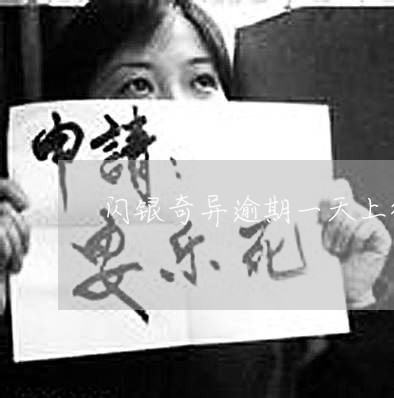 申請：
闪银奇异逾期一天上
安乐死